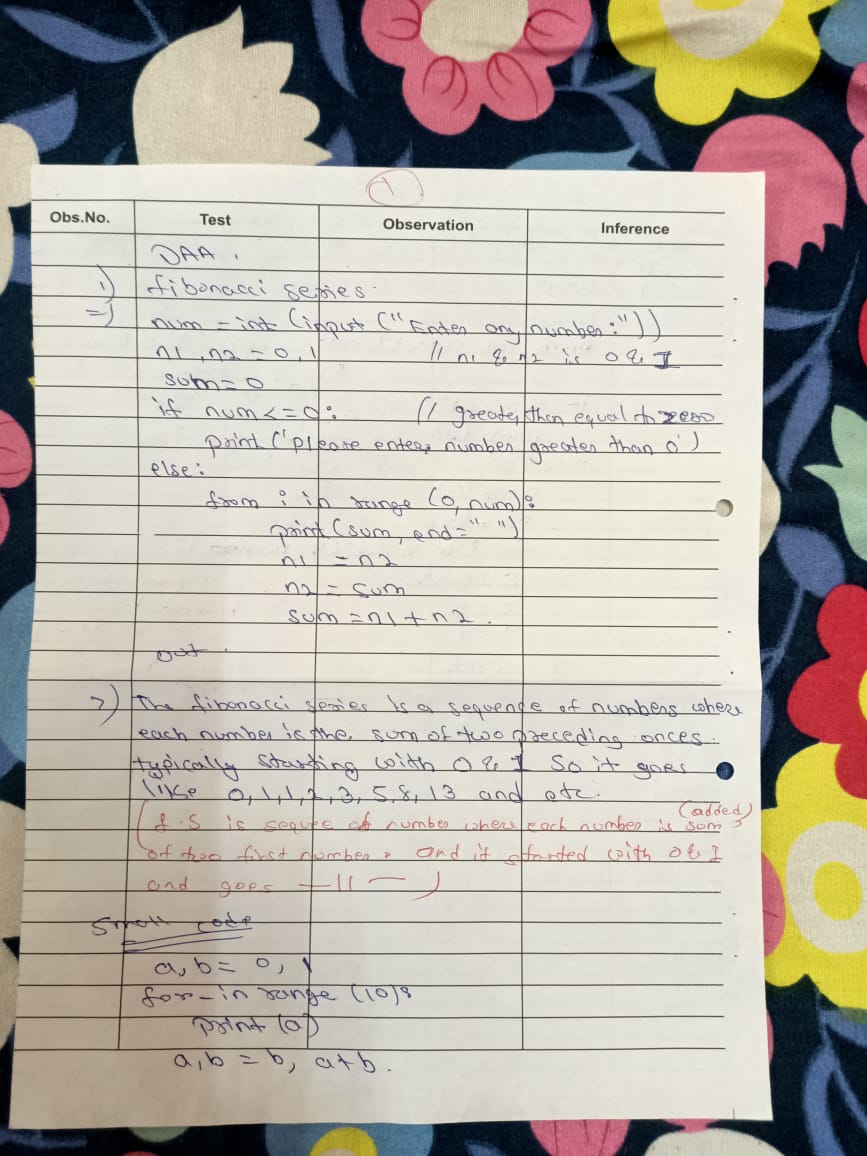 1
Obs.No. Test Observation Inference
DAA.
1) fibonacci series.
=) num = int (input ("Enter any number:"))
n1, n2 = 0, 1 // n1 & n2 is 0 & 1
sum = 0
if num <= 0: // greater then equal to zero
print ('please enter number greater than 0')
else:
from i in range (0, num):
print (sum, end=" ")
n1 = n2
n2 = sum
sum = n1 + n2.
out.
2) The fibonacci series is a sequence of numbers where
each number is the sum of two preceding onces.
typically starting with 0 & 1 So it goes
like 0, 1, 1, 2, 3, 5, 8, 13 and etc.
(added)
(f.s is sequee of number where each number is som
of two first number, and it started with 0 & 1
and goes —11—)
Small code
a, b = 0, 1
for - in range (10):
print (a)
a, b = b, a+b.